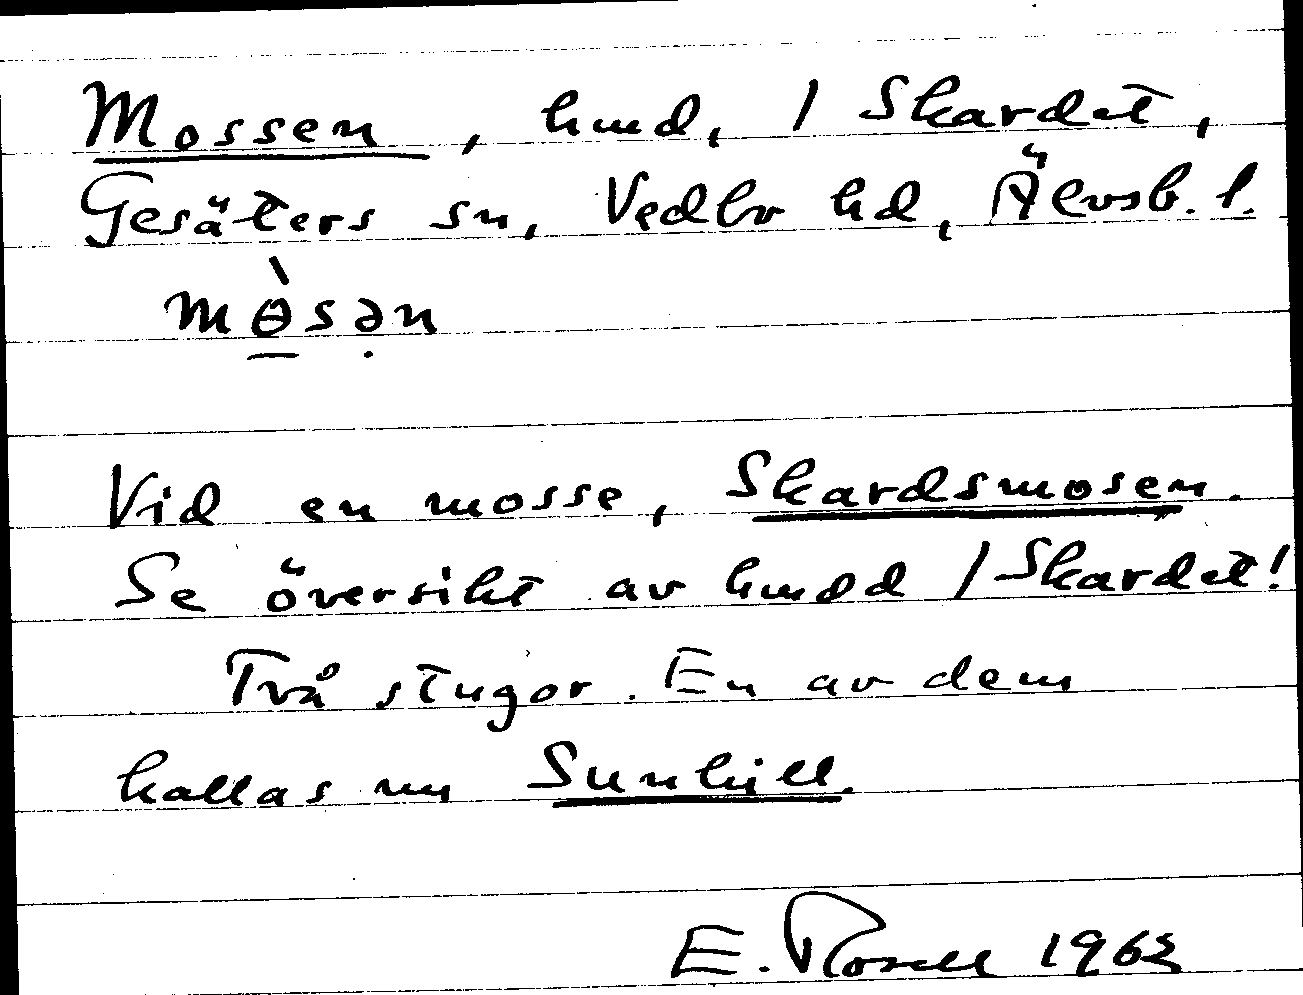 Mossen, hmd, / Skardet,
Gesäters sn, Vedbo hd, Älvsb. l.
mɵ̀sən
Vid en mosse, Skardsmosen.
Se översikt av hmdd / Skardet!
Två stugor. En av dem
kallas nu Sunhill.
E. Rosell 1963